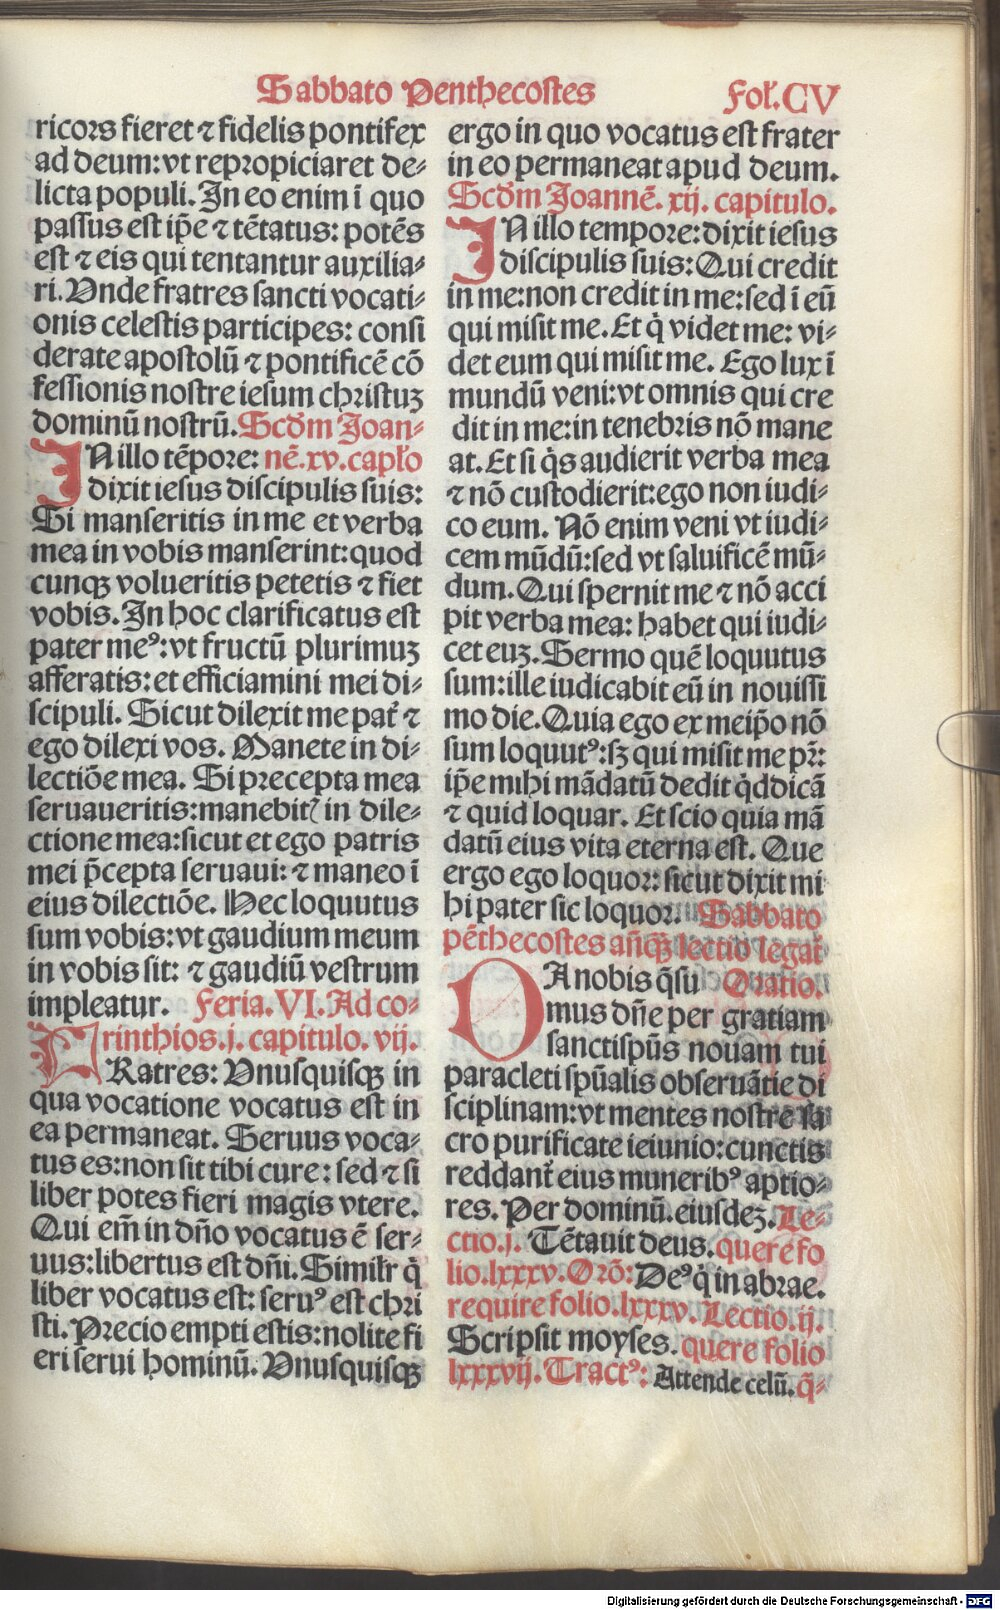 Sabbato Penthecostes
Fol'.CV
ricors fieret ⁊ fidelis pontifex
ad deum: vt repropiciaret de-
licta populi. In eo enim ī quo
passus est ip̄e ⁊ tētatus: potēs
est ⁊ eis qui tentantur auxilia-
ri. Unde fratres sancti vocati-
onis celestis participes: consi
derate apostolū ⁊ pontificē cō
fessionis nostre iesum christuꝫ
dominū nostrū. Scd̄m Joan-
IN illo tēpore: nē.xv.capl'o
dixit iesus discipulis suis:
Si manseritis in me et verba
mea in vobis manserint: quod
cunqꝫ volueritis petetis ⁊ fiet
vobis. In hoc clarificatus est
pater meꝰ: vt fructū plurimuꝫ
afferatis: et efficiamini mei di-
scipuli. Sicut dilexit me pat̄ ⁊
ego dilexi vos. Manete in di-
lectiōe mea. Si precepta mea
seruaueritis: manebitᷣ in dile-
ctione mea: sicut et ego patris
mei p̄cepta seruaui: ⁊ maneo ī
eius dilectiōe. Hec loquutus
sum vobis: vt gaudium meum
in vobis sit: ⁊ gaudiū vestrum
impleatur. Feria. VI. Ad co-
rinthios.j. capitulo. vij.
FRatres: Unusquisqꝫ in
qua vocatione vocatus est in
ea permaneat. Seruus voca-
tus es: non sit tibi cure: sed ⁊ si
liber potes fieri magis vtere.
Qui em̄ in dn̄o vocatus ē ser-
uus: libertus est dn̄i. Similr̄ q̄
liber vocatus est: seruꝰ est chri
sti. Precio empti estis: nolite fi
eri serui hominū. Unusquisqꝫ
ergo in quo vocatus est frater
in eo permaneat apud deum.
Scd̄m Joannē. xij. capitulo.
IN illo tempore: dixit iesus
discipulis suis: Qui credit
in me: non credit in me: sed ī eū
qui misit me. Et q̇ videt me: vi-
det eum qui misit me. Ego lux ī
mundū veni: vt omnis qui cre
dit in me: in tenebris nō mane
at. Et si q̇s audierit verba mea
⁊ nō custodierit: ego non iudi-
co eum. Nō enim veni vt iudi-
cem mūdū: sed vt saluificē mū-
dum. Qui spernit me ⁊ nō acci
pit verba mea: habet qui iudi-
cet euꝫ. Sermo quē loquutus
sum: ille iudicabit eū in nouissi
mo die. Quia ego ex meip̄o nō
sum loquutꝰ: sꝫ qui misit me pr̄:
ip̄e mihi mādatū dedit q̇d dicā
⁊ quid loquar. Et scio quia mā
datū eius vita eterna est. Que
ergo ego loquor: sicut dixit mi
hi pater sic loquor. Sabbato
pēthecostes an̄qꝫ lectio legat̄
DA nobis q̄su Oratio.
mus dn̄e per gratiam
sancti sp̄us nouam tui
paracleti sp̄ualis obseruātie di
sciplinam: vt mentes nostre sa
cro purificate ieiunio: cunctis
reddant̄ eius muneribꝰ aptio-
res. Per dominū. eiusdeꝫ. Le-
ctio.j. Tētauit deus. quere fo
lio.lxxxv. Orō: Deꝰ q̇ in abrae.
require folio.lxxxv. Lectio.ij.
Scripsit moyses. quere folio
lxxxvij. Tractꝰ: Attende celū. q̄-
Digitalisierung gefördert durch die Deutsche Forschungsgemeinschaft - DFG